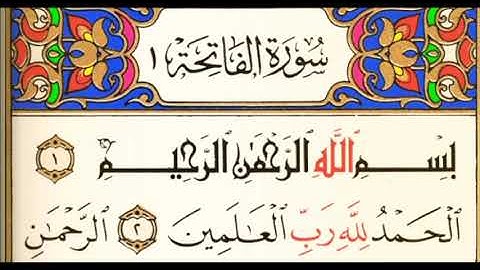 سُورَةُ الفَاتِحَة ١
بِسْمِ ٱللَّهِ ٱلرَّحْمَٰنِ ٱلرَّحِيمِ ١
ٱلْحَمْدُ لِلَّهِ رَبِّ ٱلْعَٰلَمِينَ ٢ ٱلرَّحْمَٰنِ